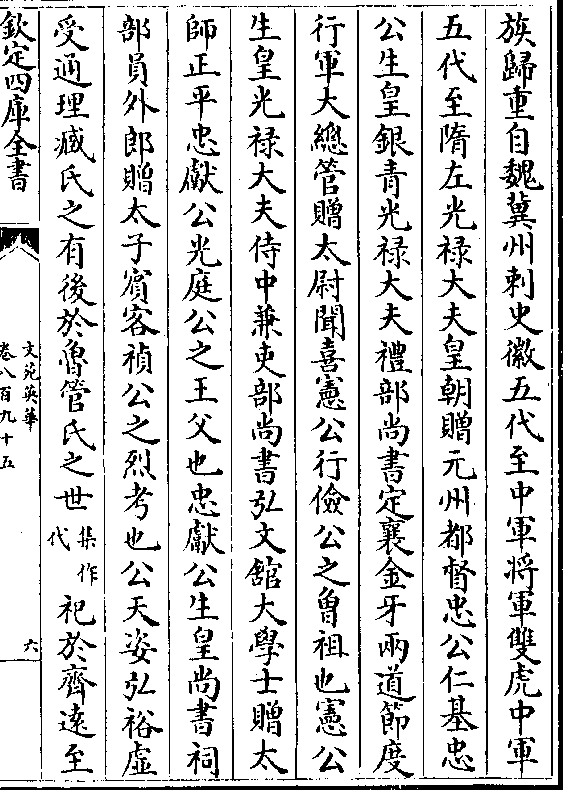 族歸重自魏冀州刺史徽五代至中軍將軍雙虎中軍
五代至隋左光禄大夫皇朝贈元州都督忠公仁基忠
公生皇銀青光禄大夫禮部尚書定襄金牙兩道節度
行軍大總管贈太尉聞喜憲公行儉公之曽祖也憲公
生皇光禄大夫侍中兼吏部尚書弘文舘大學士贈太
師正平忠獻公光庭公之王父也忠獻公生皇尚書祠
部員外郎贈太子賓客禎公之烈考也公天姿弘裕虚
受通理臧氏之有後於魯管氏之世集作代祀於齊遠至
欽定四庫全書
文苑英華
卷八百九十五
六